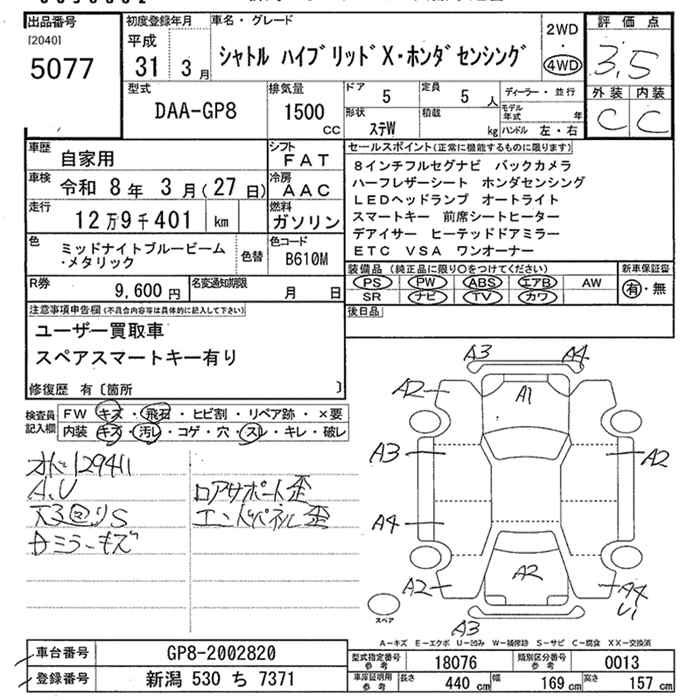 出品番号
[2040]
5077
初度登録年月
平成
31 3月
車名・グレード
シャトル ハイブリッドX・ホンダセンシング
2WD
・
4WD
評価点
3.5
外装 内装
C C
型式
DAA-GP8
排気量
1500
cc
ドア 5
定員 5 人
形状 ステW
積載 kg
ディーラー・並行
モデル年式 年
ハンドル 左・右
車歴 自家用
シフト FAT
車検 令和 8年 3月(27日)
冷房 AAC
走行 12万9千401 km
燃料 ガソリン
色 ミッドナイトブルービーム
・メタリック
色替
色コード
B610M
R券 9,600円
名変通知期限 月 日
セールスポイント(正常に機能するものに限ります)
8インチフルセグナビ バックカメラ
ハーフレザーシート ホンダセンシング
LEDヘッドランプ オートライト
スマートキー 前席シートヒーター
デアイサー ヒーテッドドアミラー
ETC VSA ワンオーナー
装備品(純正品に限り○をつけてください)
PS PW ABS エアB AW
SR ナビ TV カワ
新車保証書
有・無
後日品
注意事項申告欄(不具合内容等は具体的に記入して下さい)
ユーザー買取車
スペアスマートキー有り
修復歴 有〔箇所 〕
検査員
記入欄
FW キズ・飛石・ヒビ割・リペア跡・×要
内装 キズ・汚レ・コゲ・穴・スレ・キレ・破レ
129411
A.U
S
ミラーキズ
ロアサポート歪
エンドパネル歪
A3 A4
A2 A1
A3 A2
A4
A2 A2 A4
U1
A3
スペア
A-キズ E-エクボ U-凹み W-補修跡 S-サビ C-腐食 XX-交換済
車台番号 GP8-2002820
登録番号 新潟 530 ち 7371
型式指定番号
参考
18076
類別区分番号
参考
0013
車庫証明用
参考
長さ 440 cm 幅 169 cm 高さ 157 cm